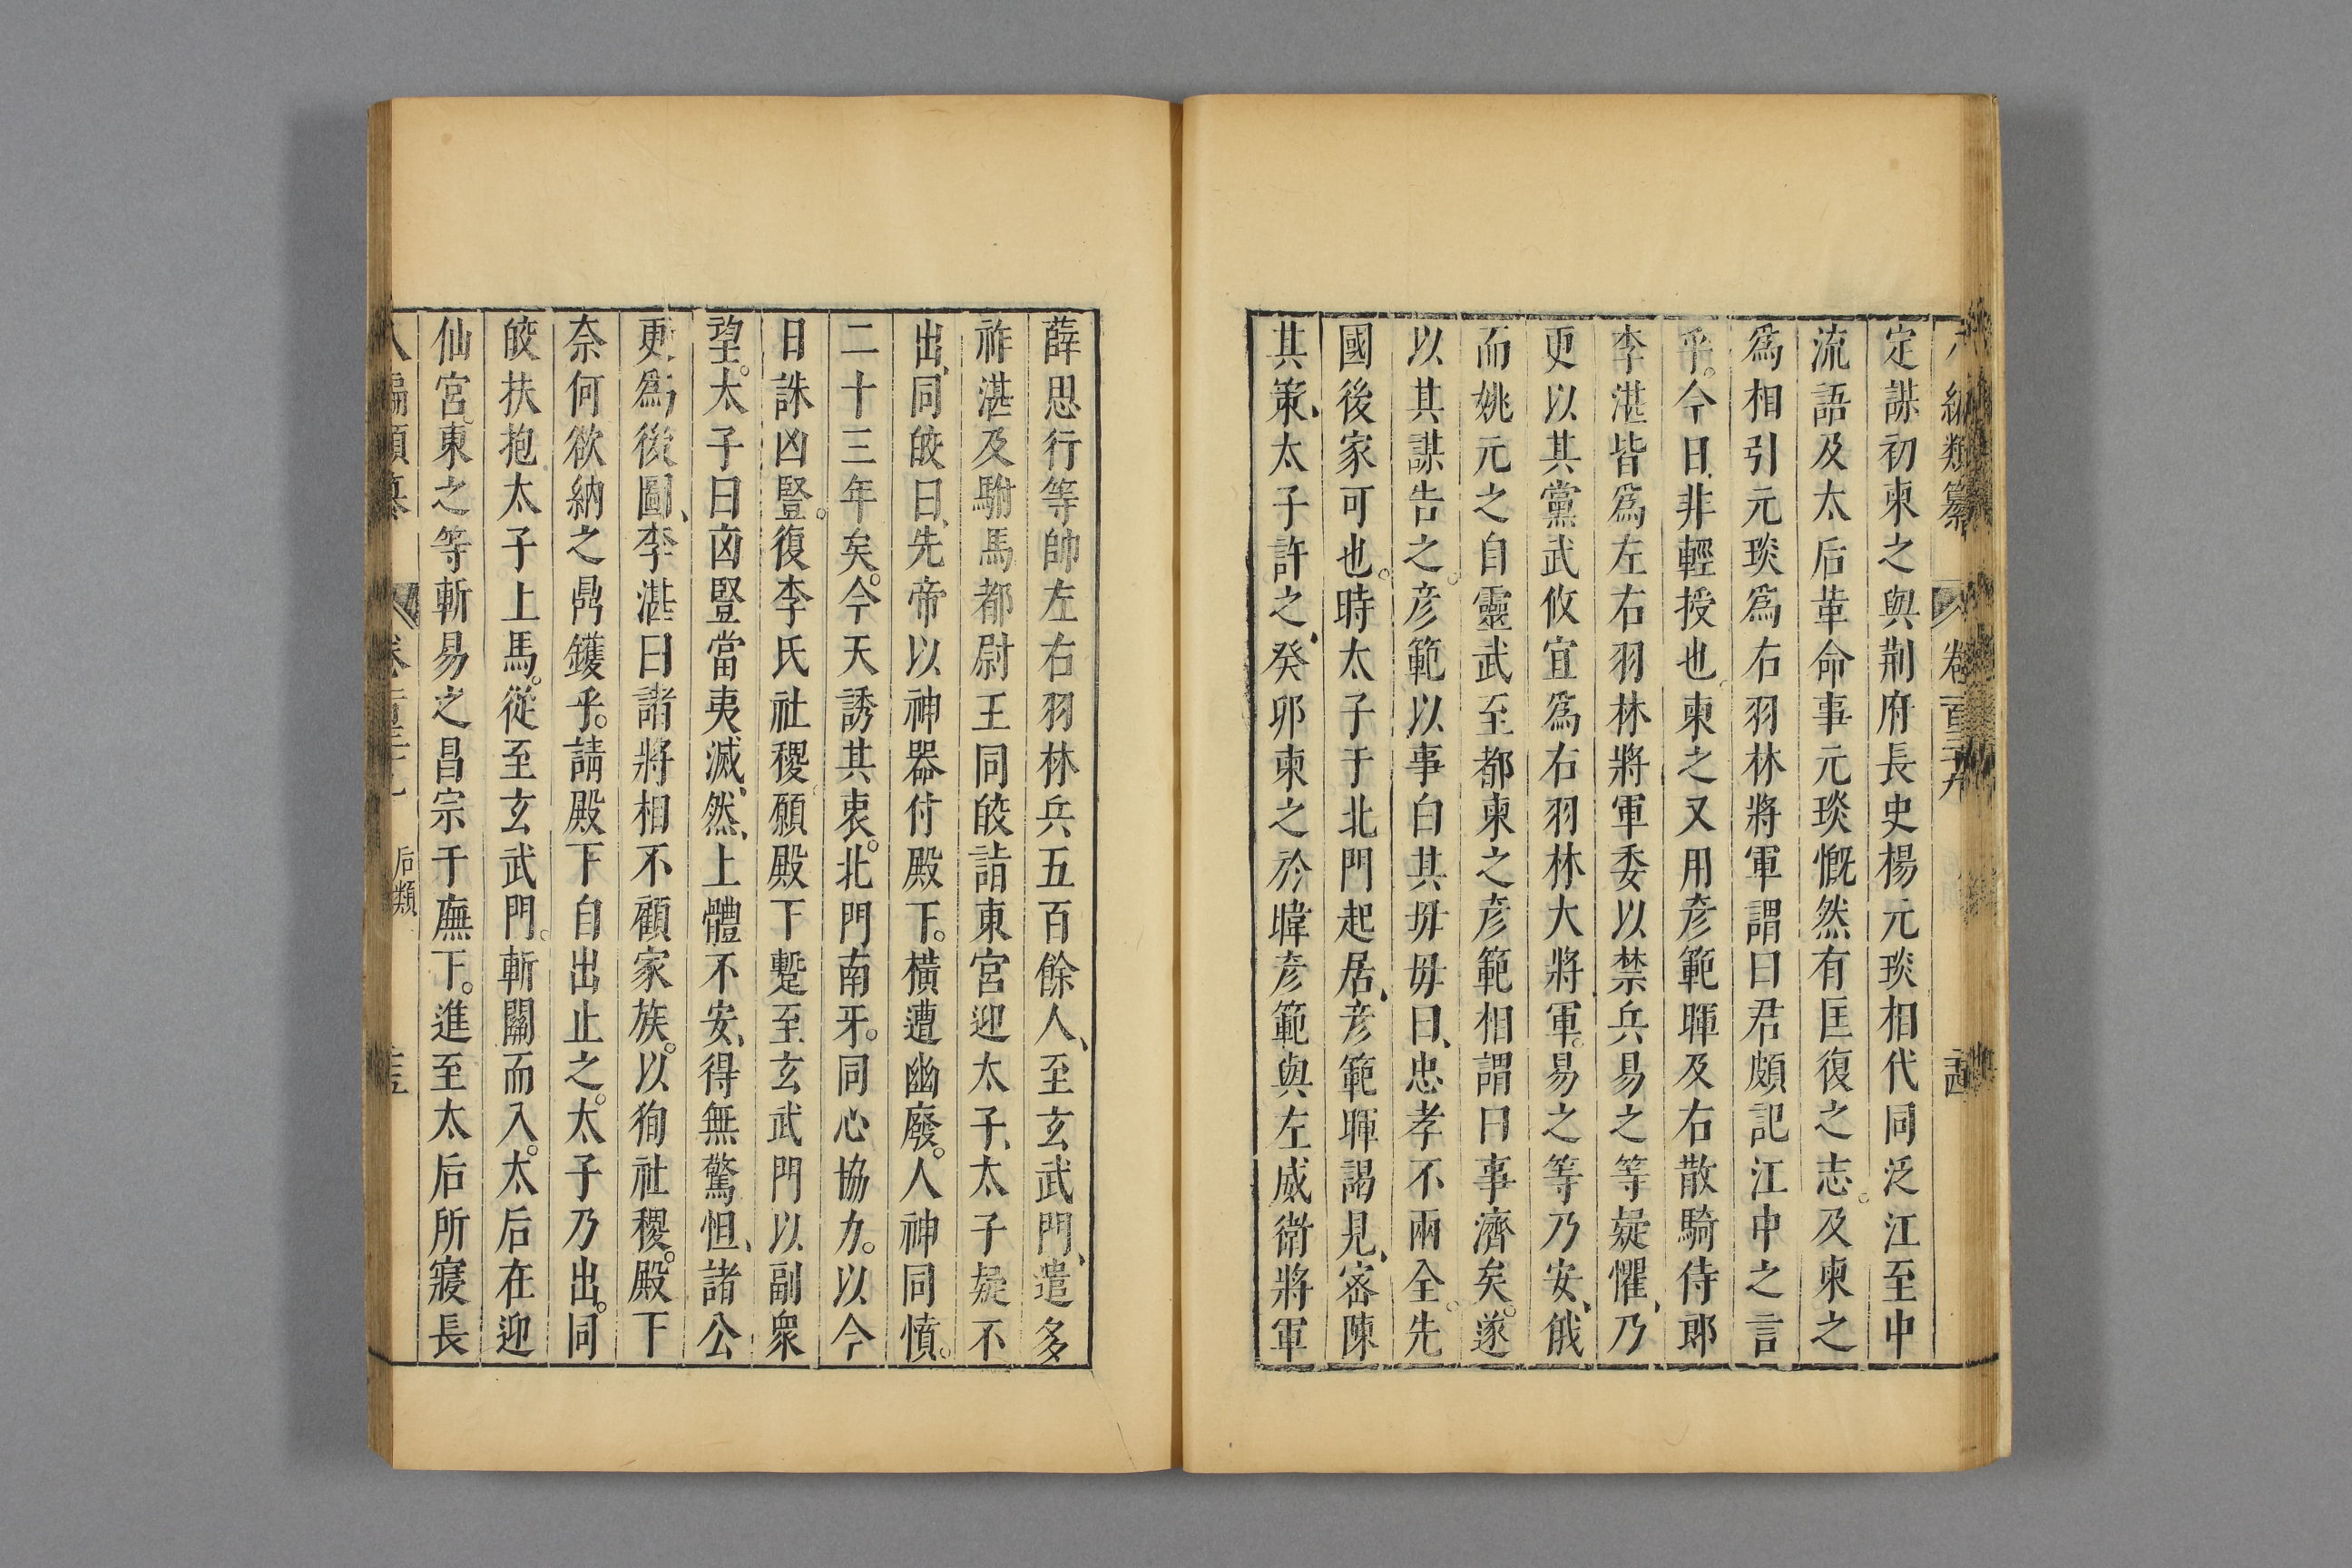 八編類纂 卷一百三十九 十四
定謀初柬之與荆府長史楊元琰相代同泛江至中
流語及太后革命事元琰慨然有匡復之志。及柬之
爲相引元琰爲右羽林將軍謂曰君頗記江中之言
乎。今日非輕授也。柬之又用彦範暉及右散騎侍郎
李湛皆爲左右羽林將軍委以禁兵易之等疑懼、乃
更以其黨武攸宜爲右羽林大將軍。易之等乃安、俄
而姚元之自靈武至都柬之彦範相謂曰事濟矣。遂
以其謀告之。彦範以事白其毋毋曰、忠孝不兩全。先
國後家可也。時太子于北門起居、彦範暉謁見、宻陳
其策、太子許之、癸卯柬之𤣥暐彦範與左威衛將軍
薛思行等帥左右羽林兵五百餘人、至玄武門、遣多
祚湛及駙馬都尉王同皎詣東宮迎太子、太子疑不
出、同皎曰、先帝以神器付殿下。橫遭幽廢。人神同憤。
二十三年矣。今天誘其衷。北門南牙。同心協力。以今
日誅凶豎。復李氏社稷。願殿下蹔至玄武門以副衆
望。太子曰凶豎當夷滅、然、上體不安、得無驚怛、諸公
更爲後圖、李湛曰諸將相不顧家族。以狥社稷。殿下
奈何欲納之鼎鑊乎。請殿下自出止之。太子乃出。同
皎扶抱太子上馬。從至玄武門。斬關而入。太后在迎
仙宮、柬之等斬易之昌宗于廡下。進至太后所寢長
八編類纂 卷一百三十九 后類 十五